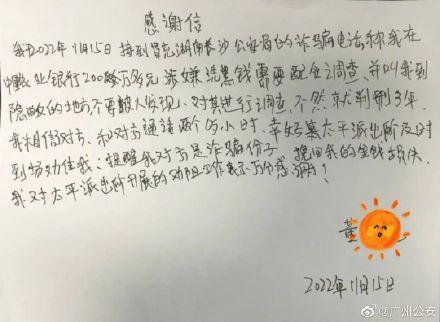 感谢信
我于2022年11月15日接到冒充湖南长沙公安局的诈骗电话称我在
中国农业银行200多万多元涉嫌洗黑钱需要配合调查,并叫我到
隐蔽的地方不要赖人发现,对其进行调查,不然就判刑3年。
我相信对方,和对方通话两个多小时,幸好墓太平派出所及时
到场劝住我:提醒我对方是诈骗份子 挽回我的金钱损失
我对太平派出所开展的劝阻工作表示万分感谢!
董
2022年11月15日
@广州公安